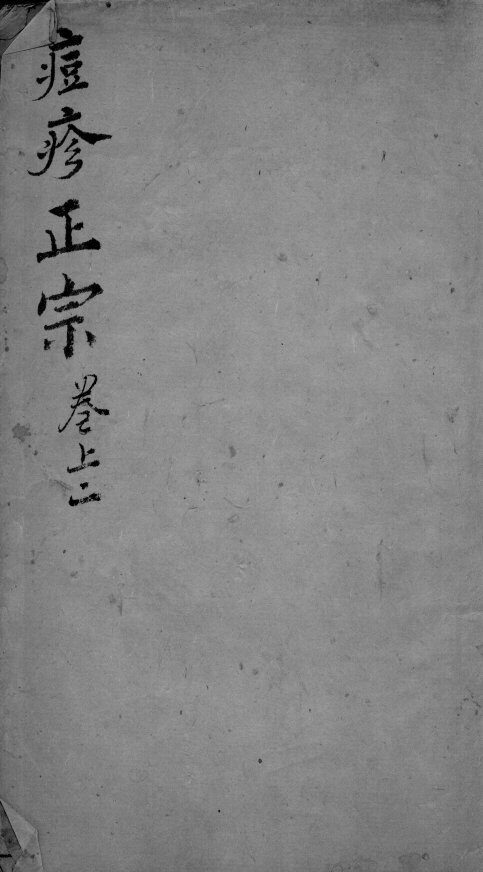 痘疹正宗卷上二